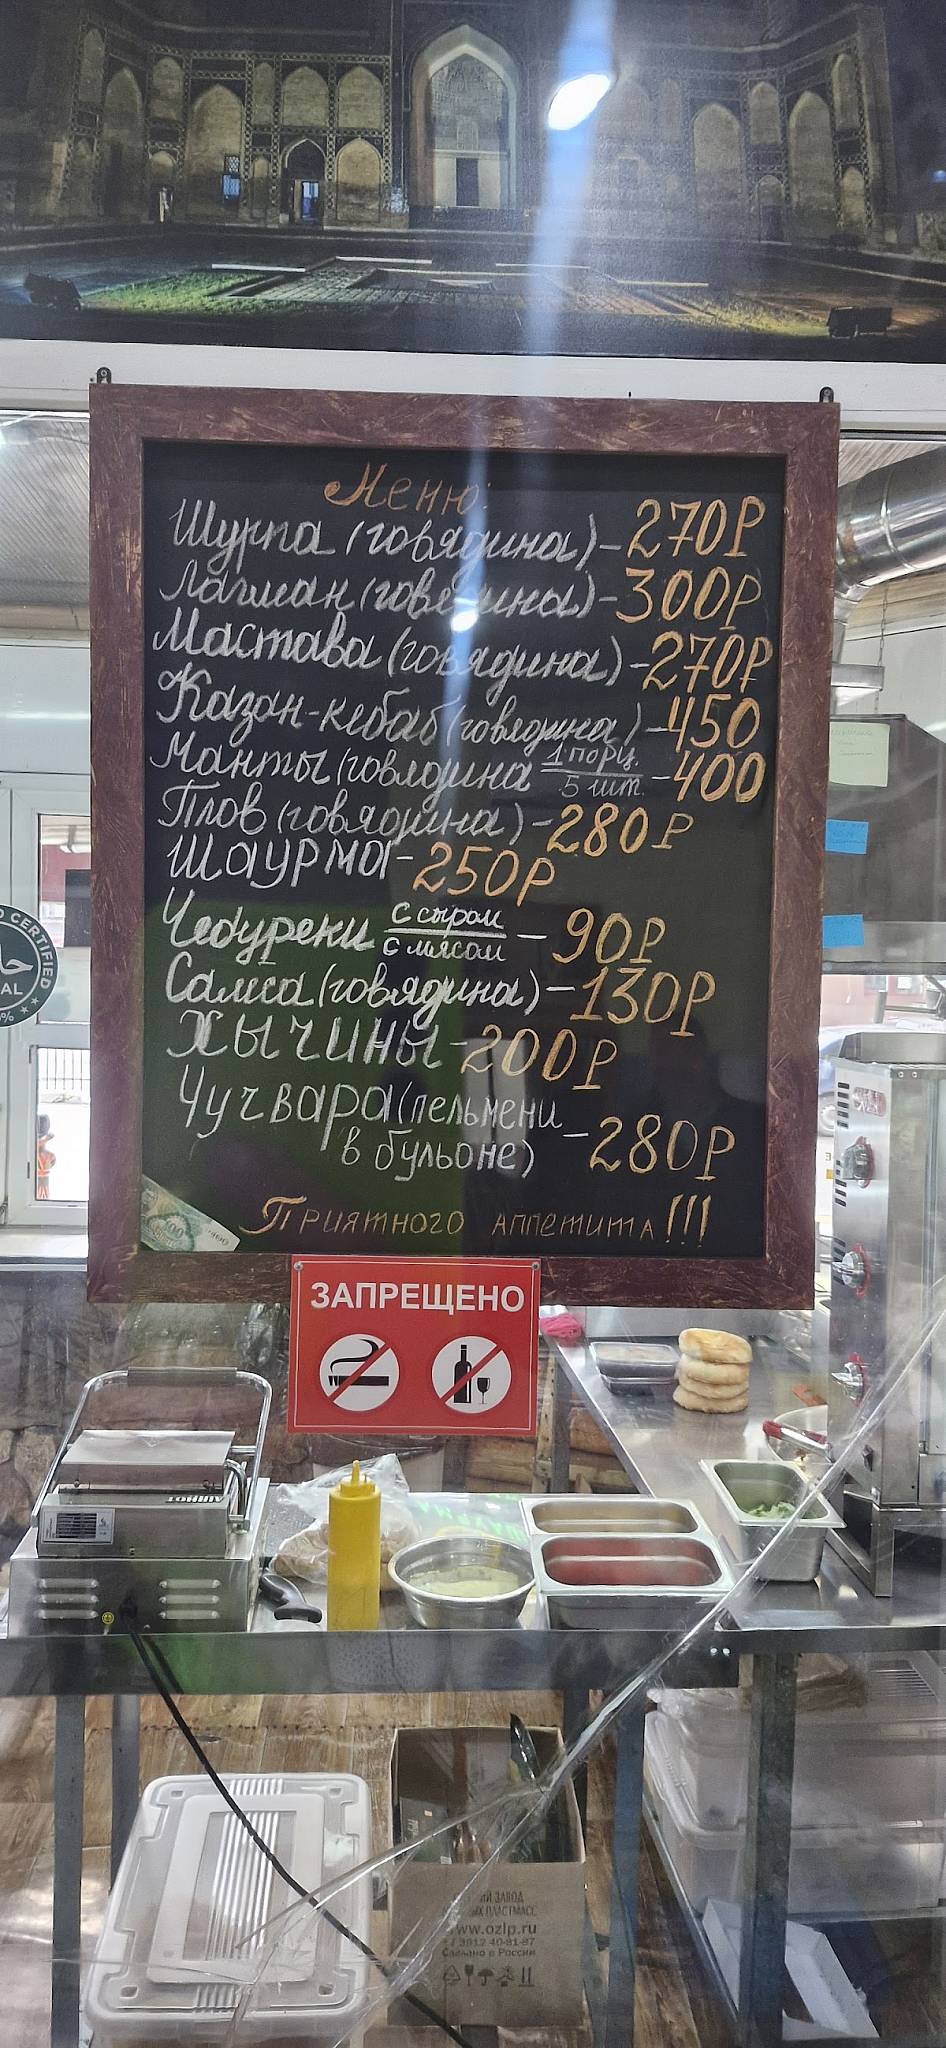 Меню:
Шурпа (говядина) - 270Р
Лагман (говядина) - 300Р
Мастава (говядина) - 270Р
Казан-кебаб (говядина) - 450
Манты (говядина 1 порц. 5 шт. - 400
Плов (говядина) - 280Р
Шаурма - 250Р
Чебуреки с сыром с мясом - 90Р
Самса (говядина) - 130Р
Хычины - 200Р
Чучвара (пельмени
в бульоне) - 280Р
Приятного аппетита!!!
CERTIFIED
ЗАПРЕЩЕНО
ЗАВОД
www.ozlp.ru
Сделано в России